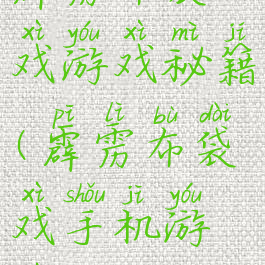 xì yóu xì mì jí
戏游戏秘籍
pī lì bù dài
(霹雳布袋
xì shǒu jī yóu
戏手机游